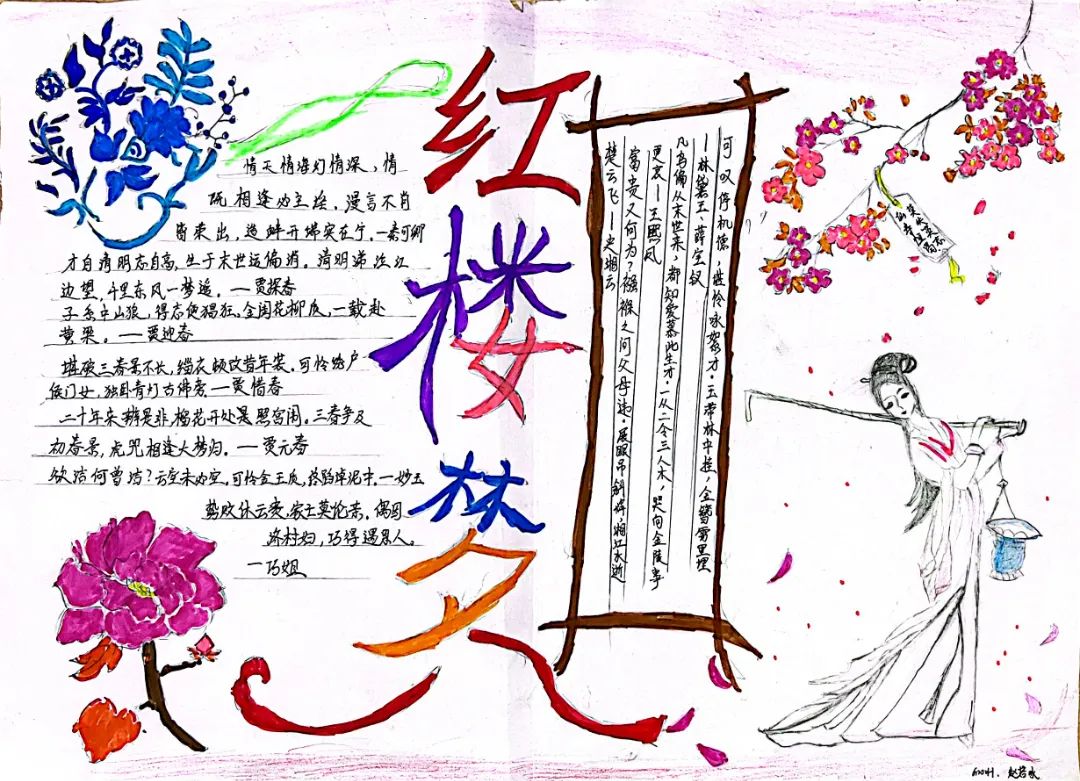 红楼梦
情天情海幻情深，情
既相逢必主淫。漫言不肖
皆荣出，造衅开端实在宁。—秦可卿
才自清明志自高，生于末世运偏消。清明涕泣江
边望，千里东风一梦遥。—贾探春
子系中山狼，得志便猖狂。金闺花柳质，一载赴
黄粱。——贾迎春
堪破三春景不长，缁衣顿改昔年装。可怜绣户
侯门女，独卧青灯古佛旁。—贾惜春
二十年来辨是非，榴花开处是照宫闱。三春争及
初春景，虎兕相逢大梦归。——贾元春
欲洁何曾洁？云空未必空。可怜金玉质，终陷淖泥中。—妙玉
势败休云贵，家亡莫论亲。偶因
济村妇，巧得遇恩人。
—巧姐
可叹停机德，堪怜咏絮才。玉带林中挂，金簪雪里埋
—林黛玉、薛宝钗
凡鸟偏从末世来，都知爱慕此生才。一从二令三人木，哭向金陵事
更哀—王熙凤
富贵又何为？襁褓之间父母违。展眼吊斜辉，湘江水逝
楚云飞—史湘云